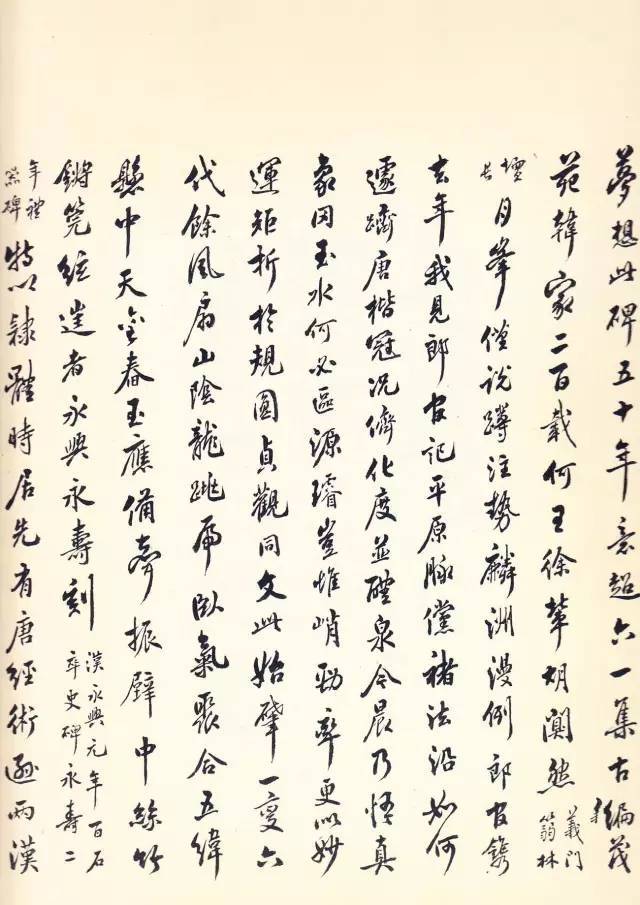 夢想此碑五十年意超六一集古編茂
苑韓家二百載何王徐輩胡闃然義門篛林
壇長月峯僧說蹲注勢麟洲漫例郎官鐫
去年我見郎官記平原脉儻褚法沿如何
遽躋唐楷冠況儕化度並醴泉今晨乃悟真
象罔玉水何必區源璿豈惟峭勁率更似妙
運矩折於規圓貞觀同文此始肇一變六
代餘風扇山陰龍跳虎臥氣聚合五緯
懸中天金舂玉應備奏振壁中絲竹
鏘筦絃者永興永壽刻漢永興元年百石卒史碑永壽二
年禮器碑特以隸體時居先有唐經術遜兩漢